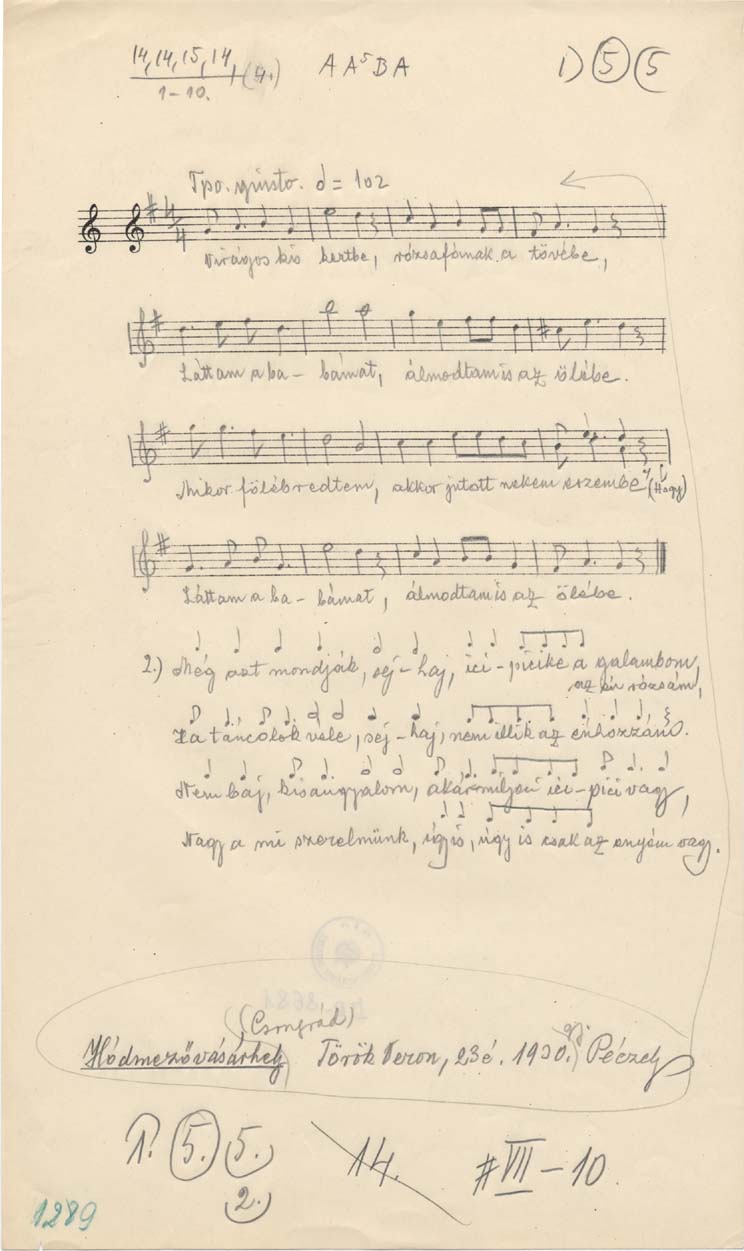 14, 14, 15, 14, (4.) A A⁵ B A 1) 5 5
1–10.
Tpo. giusto. = 102
4/4
Virágos kis kertbe, rózsafának a tövébe,
Láttam a ba - bámat, álmodtam is az ölébe.
Mikor fölébredtem, akkor jutott nekem eszembe (Hagy)
Láttam a ba - bámat, álmodtam is az ölébe.
2.) Még azt mondják, sej-haj, ici-picike a galambom,
az én rózsám,
Ha táncolok vele, sej-haj, nem illik az énhozzám.
Nem baj, kisangyalom, akármilyen ici-pici vagy,
Nagy a mi szerelmünk, úgy is, úgy is csak az enyém vagy.
(Csongrád)
Hódmezővásárhely Török Veron, 23 é. 1930. Péczely
1. 5. 5. 14. # VII – 10.
2.
1289